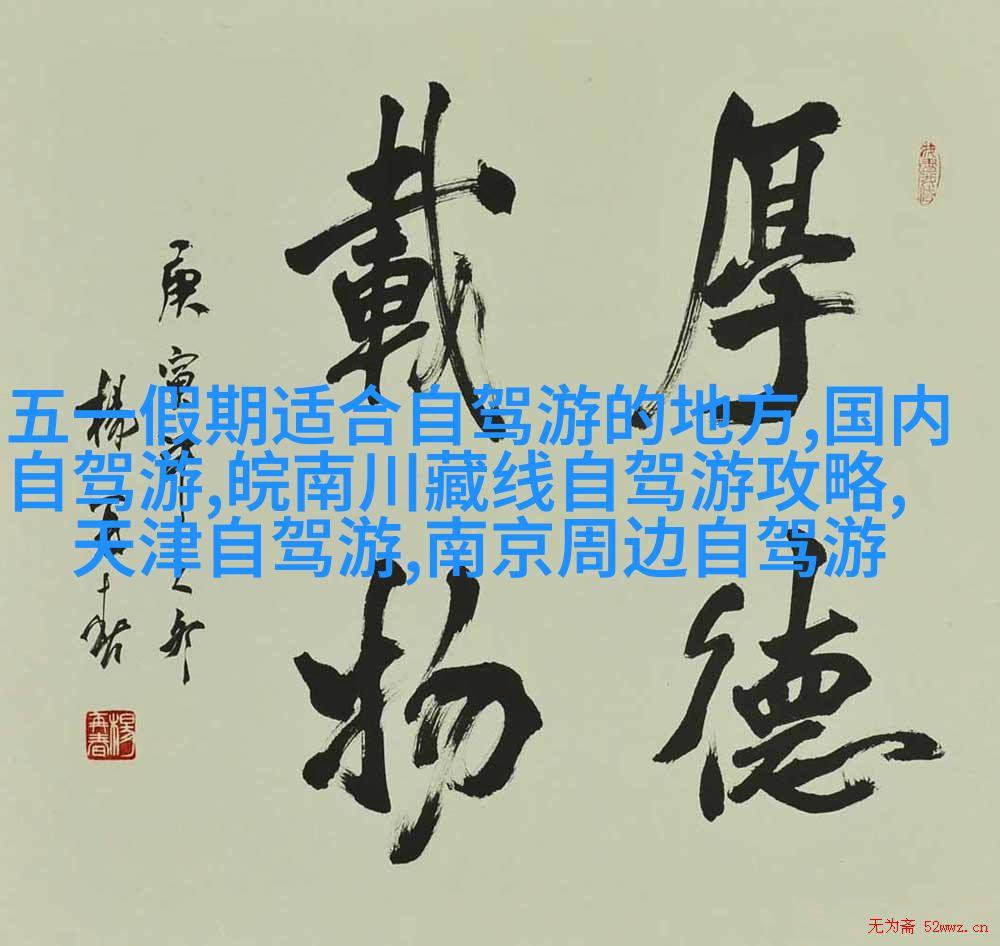 厚德
載物
庚寅年
楊再春
五一假期适合自驾游的地方,国内
自驾游,皖南川藏线自驾游攻略,
天津自驾游,南京周边自驾游
楊再春
无为斋 52wwz.cn